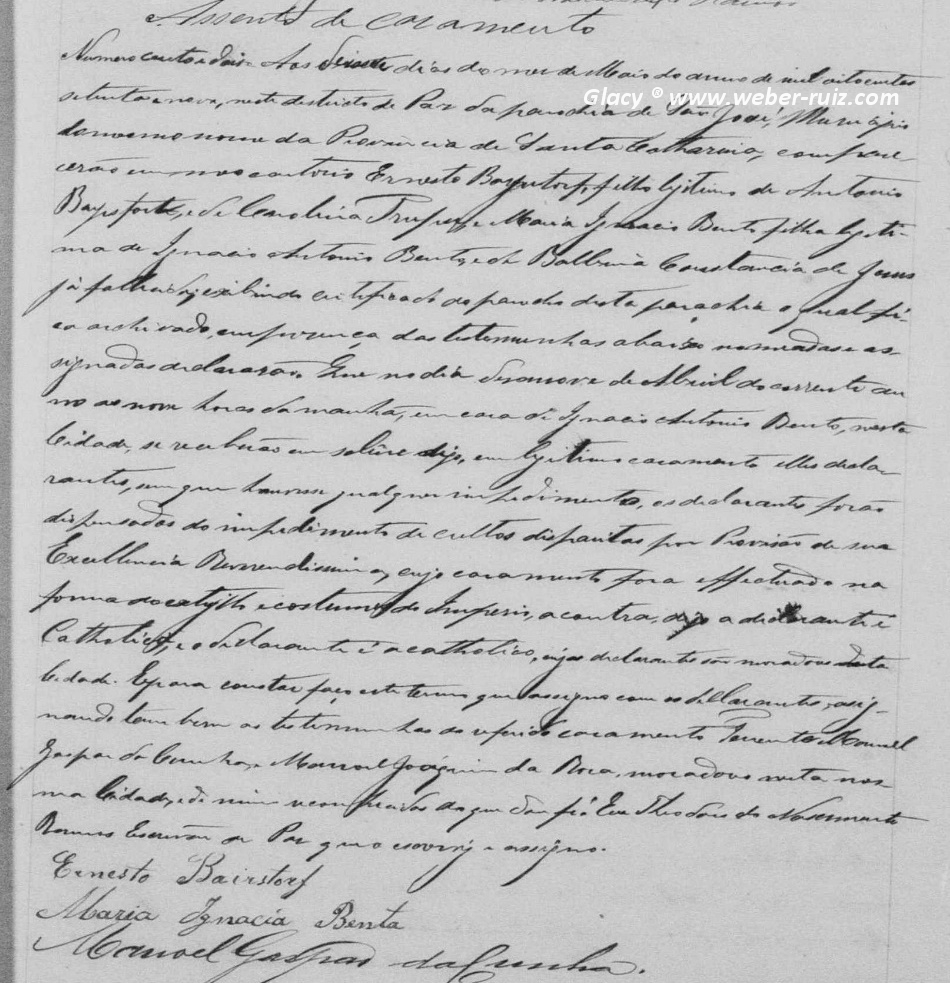 Assento de casamento
Numero cento e dois. Aos dias do mez de Maio do anno de mil oitocentos
Glacy ® www.weber-ruiz.com
setenta e nove, neste districto de Paz da parochia de São José, Municipio
do mesmo nome da Provincia de Santa Catharina, compare-
cerão em meo cartorio Ernesto filho legitimo de Antonio
e de Carolina e Maria Ignacia Bento filha legiti-
ma de Ignacio Antonio Bento, e de Balbina Constancia de Jesus
já exibindo certificado do parocho desta parochia o qual fi-
ca archivado, em presença das testemunhas abaixo nomeadas e as-
signadas declararão. Que no dia desanove de Abril do corrente an
no as nove horas da manhã, em casa de Ignacio Antonio Bento, nesta
Cidade, se receberão em digo, em legitimo casamento elles decla-
rantes, sem que houvesse qualquer impedimento, os declarantes forão
dispensados do impedimento de cultos disparitas por Provisão de sua
Excellencia Reverendissima, cujo casamento fora effectuado na
forma do e costumes do Imperio, a contra, digo a declarante é
Catholica, e o declarante é acatholico, cujos declarantes são moradores desta
Cidade. E para constar faço este termo que assigno com os declarantes, asig-
nando tambem as testemunhas do referido casamento Manoel
Gaspar da Cunha, e Manoel Joaquim da Roza, moradores nesta mes-
ma Cidade, e de mim reconhecidos do que dou fé. Eu Theodoro do Nascimento
Ramos Escrivão de Paz que o escrevy e assigno.
Ernesto Bairstorf
Maria Ignacia Benta
Manoel Gaspar da Cunha.